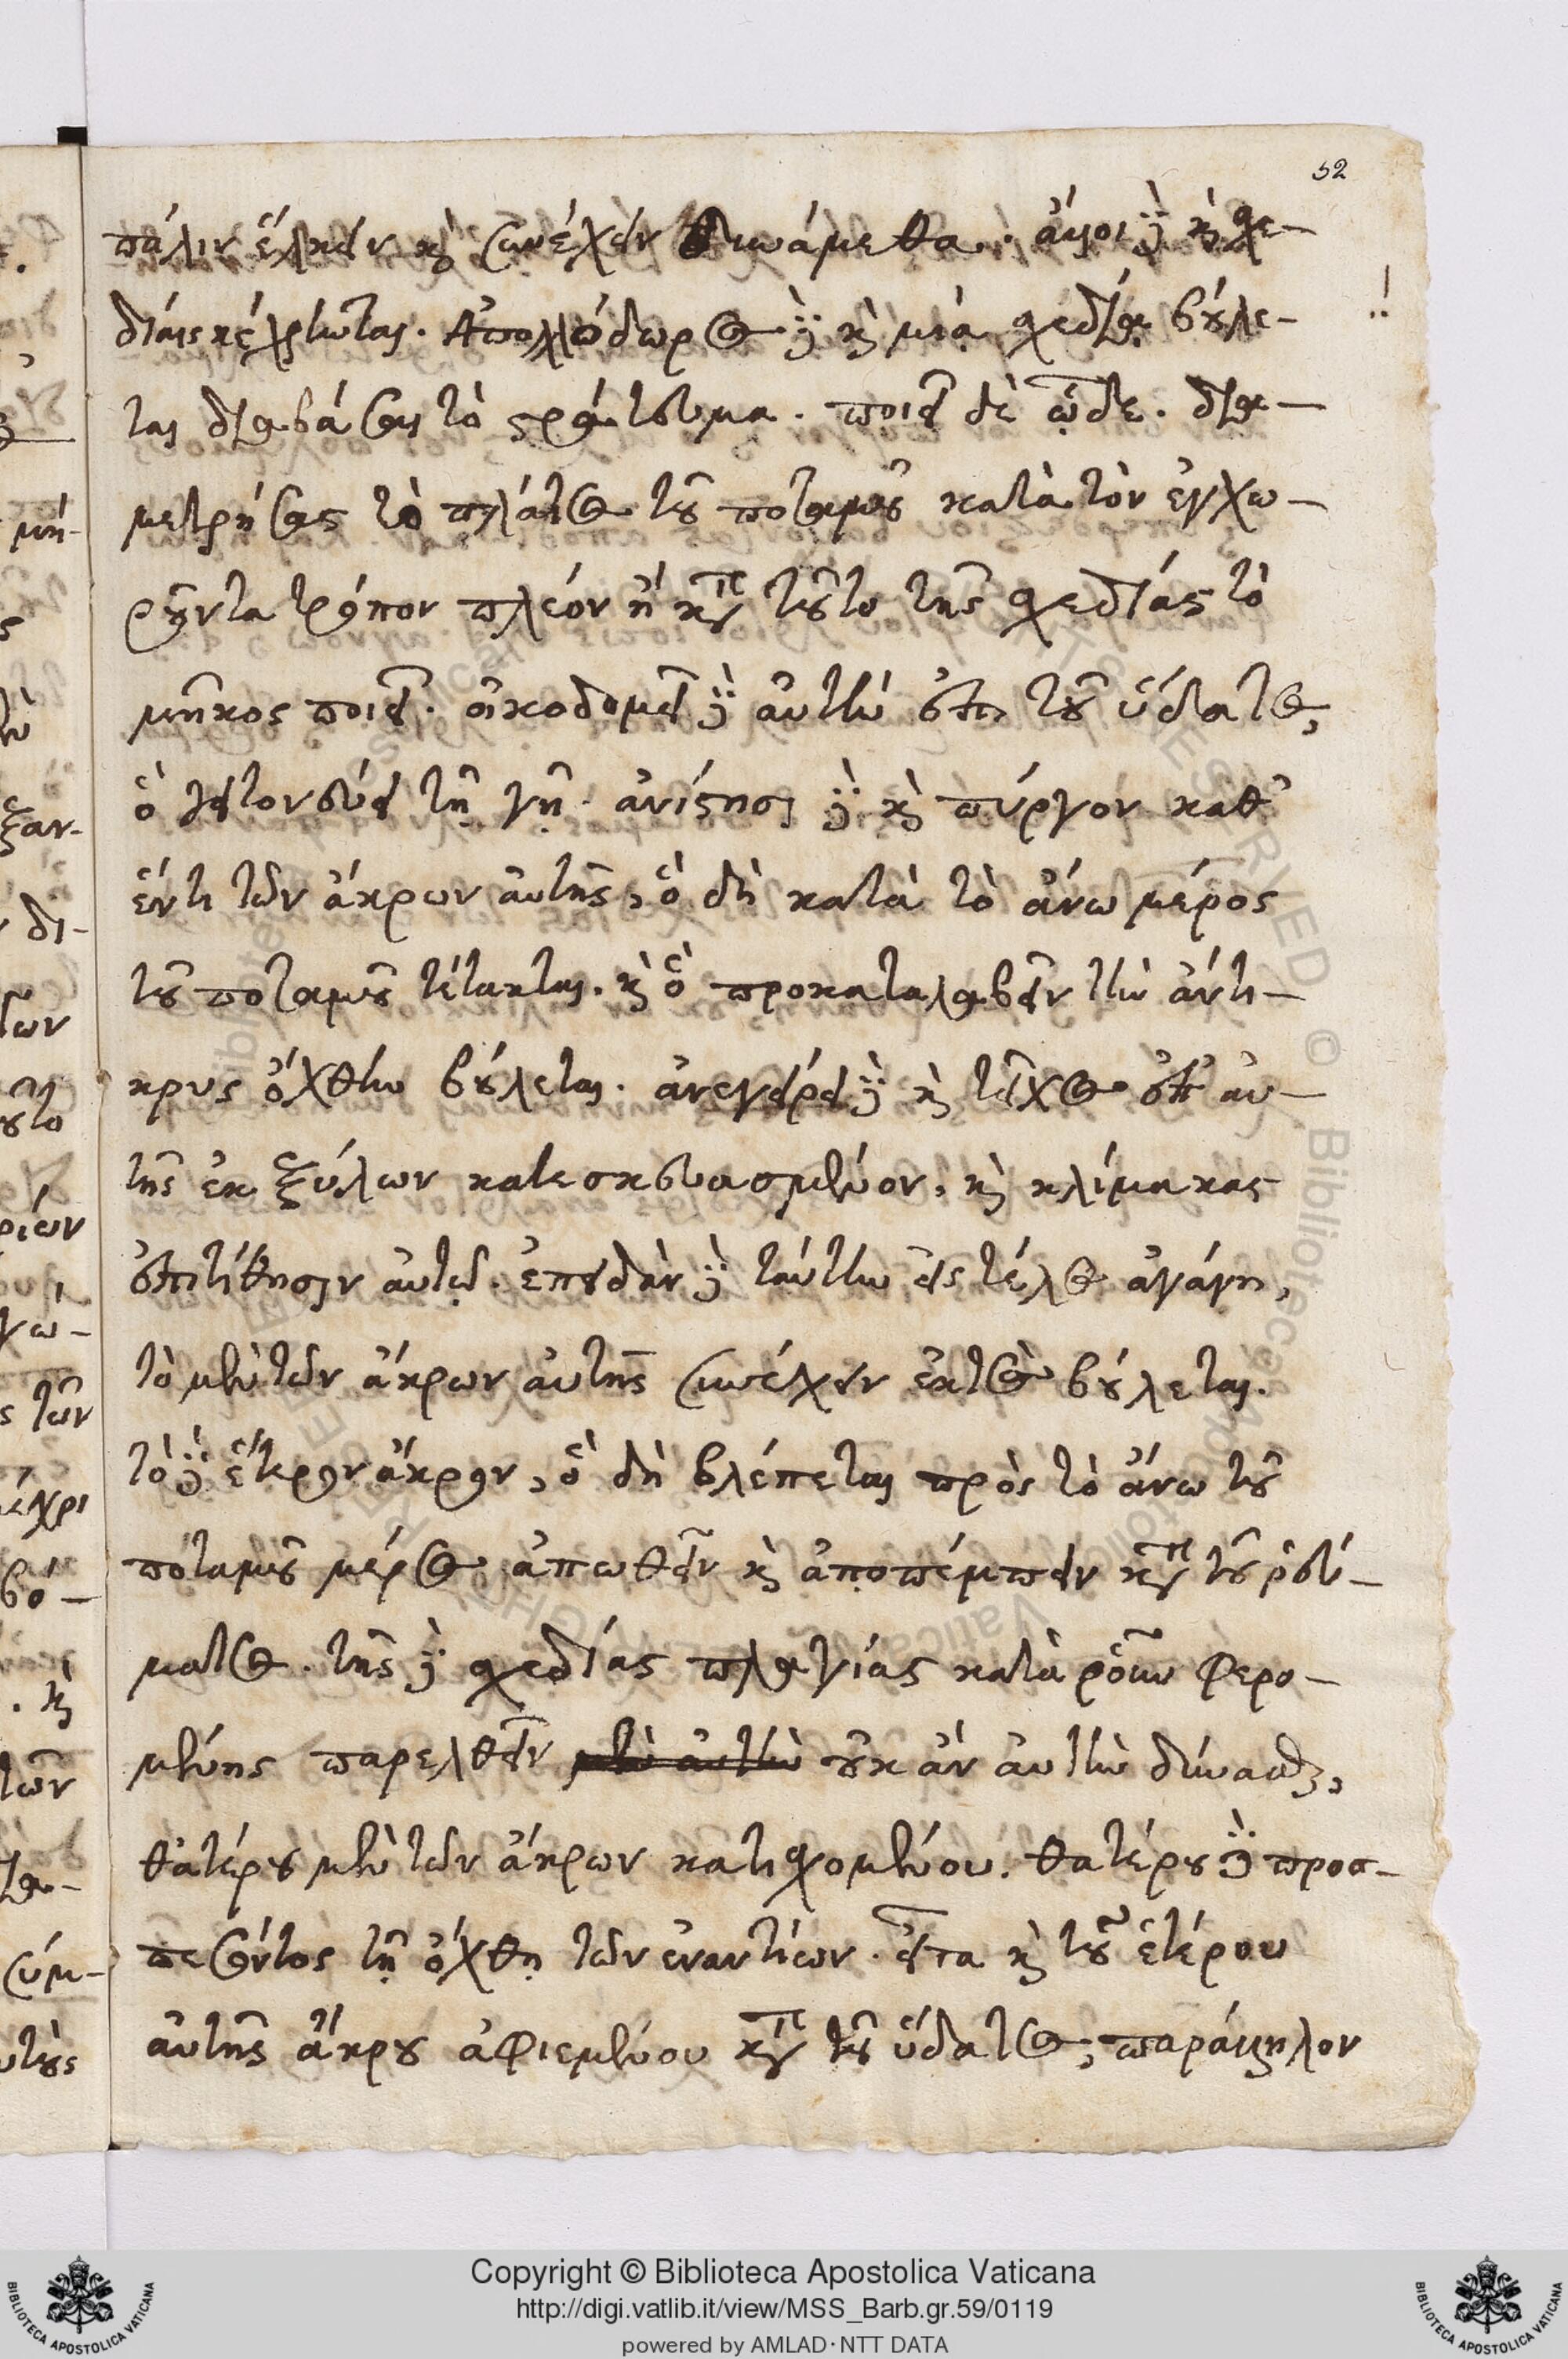 52
πάλιν ἕλκειν καὶ συνέχειν δυνάμεθα. ἄλλοι δὲ καὶ σχε-
δίαις κέχρηνται. Ἀπολλόδωρος δὲ καὶ μιᾷ σχεδίᾳ βούλε-
ται διαβάσαι τὸ στράτευμα. ποιεῖ δὲ ὧδε. δια-
μετρήσας τὸ πλάτος τοῦ ποταμοῦ κατὰ τὸν ἐγχω-
ροῦντα τρόπον πλέον ἢ κατὰ τοῦτο τῆς σχεδίας τὸ
μῆκος ποιεῖ. οἰκοδομεῖ δὲ αὐτὴν ἐπὶ τοῦ ὕδατος,
ὃ γειτονεύει τῇ γῇ. ἀνίστησι δὲ καὶ πύργον καθ'
ἕν τι τῶν ἄκρων αὐτῆς, ὃ δὴ κατὰ τὸ ἄνω μέρος
τοῦ ποταμοῦ τέτακται. καὶ ὃ προκαταλαβεῖν τὴν ἄντι-
κρυς ὄχθην βούλεται. ἀνεγείρει δὲ καὶ τεῖχος ἐπ' αὐ-
τῆς ἐκ ξύλων κατεσκευασμένον, καὶ κλίμακας
ἐπιτίθησιν αὐτῷ. ἐπειδὰν δὲ ταύτην εἰς τέλος ἀγάγῃ,
τὸ μὲν τῶν ἄκρων αὐτῆς συνέχειν ἐκτὸς βούλεται.
τὸ δὲ ἕτερον ἄκρον, ὃ δὴ βλέπεται πρὸς τὸ ἄνω τοῦ
ποταμοῦ μέρος ἀπωθεῖν καὶ ἀποπέμπειν κατὰ τοῦ ῥεύ-
ματος. τῆς δὲ σχεδίας πλαγίας κατὰ ῥοῦν φερο-
μένης παρελθεῖν μὲν αὐτὴν οὐκ ἂν αὐτὴν δύνασθαι,
θατέρου μὲν τῶν ἄκρων κατισχομένου. θατέρου δὲ προσ-
πεσόντος τῇ ὄχθῃ τῶν ἐναντίων. εἶτα καὶ τοῦ ἑτέρου
αὐτῆς ἄκρου ἀφιεμένου κατὰ τοῦ ὕδατος, παράλληλον
Copyright © Biblioteca Apostolica Vaticana
http://digi.vatlib.it/view/MSS_Barb.gr.59/0119
powered by AMLAD·NTT DATA